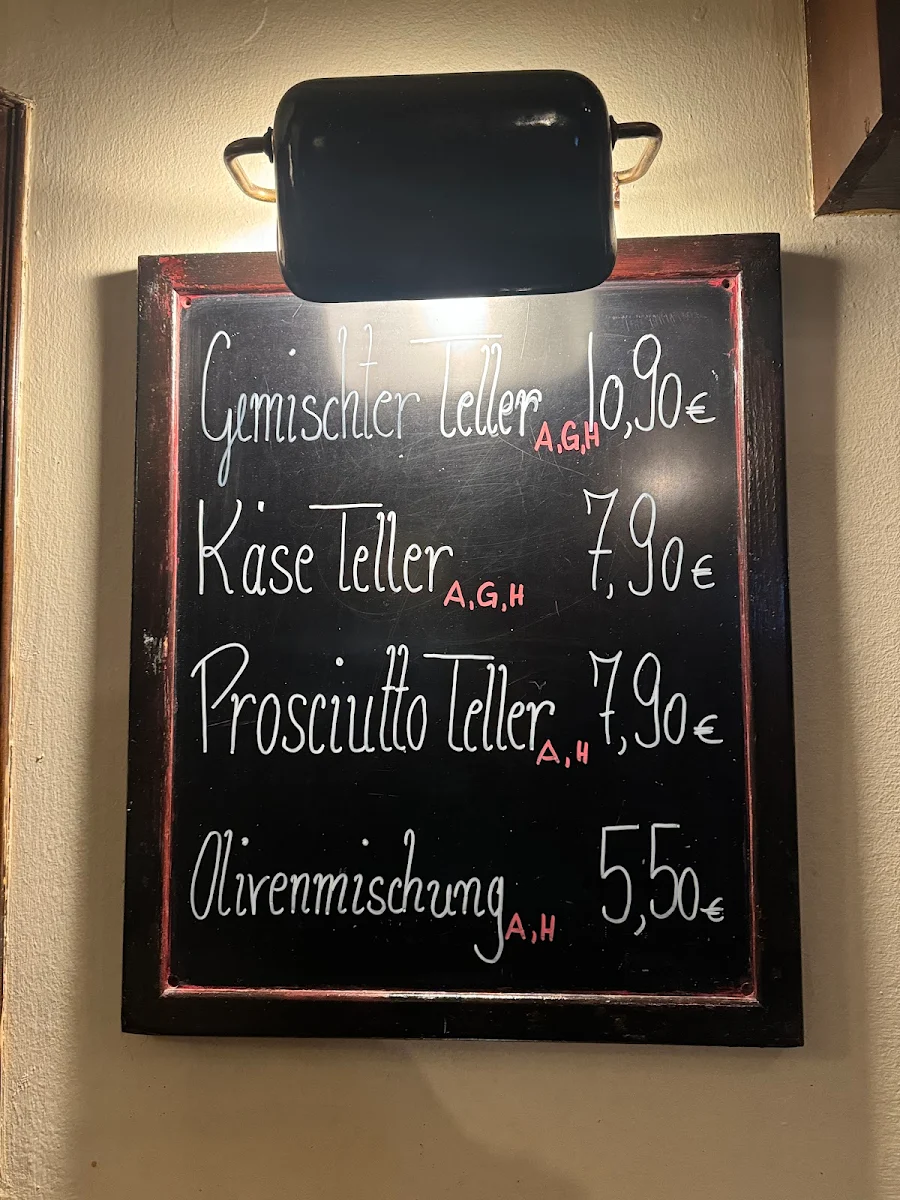 Gemischter Teller A,G,H 10,90€
Käse Teller A,G,H 7,90€
Prosciutto Teller A,H 7,90€
Olivenmischung A,H 5,50€